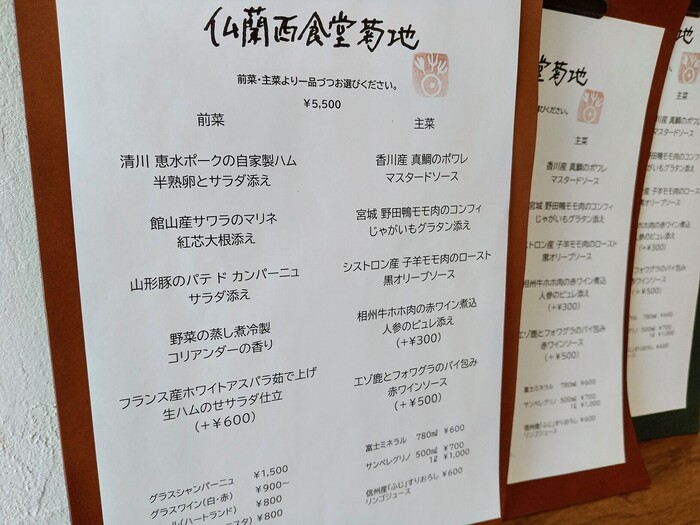 仏蘭西食堂菊地
前菜・主菜より一品づつお選びください。
¥5,500
前菜
清川 恵水ポークの自家製ハム
半熟卵とサラダ添え
館山産サワラのマリネ
紅芯大根添え
山形豚のパテ ド カンパーニュ
サラダ添え
野菜の蒸し煮冷製
コリアンダーの香り
フランス産ホワイトアスパラ茹で上げ
生ハムのせサラダ仕立
(+¥600)
グラスシャンパーニュ ¥1,500
グラスワイン(白・赤) ¥900~
ル(ハートランド) ¥800
¥800
主菜
香川産 真鯛のポワレ
マスタードソース
宮城 野田鴨モモ肉のコンフィ
じゃがいもグラタン添え
シストロン産 子羊モモ肉のロースト
黒オリーブソース
相州牛ホホ肉の赤ワイン煮込
人参のピュレ添え
(+¥300)
エゾ鹿とフォワグラのパイ包み
赤ワインソース
(+¥500)
富士ミネラル 780㎖ ¥600
サンペレグリノ 500㎖ ¥700
1ℓ ¥1,000
信州産「ふじ」すりおろし ¥600
リンゴジュース
堂菊地
びください。
主菜
香川産 真鯛のポワレ
マスタードソース
宮城 野田鴨モモ肉のコンフィ
じゃがいもグラタン添え
ストロン産 子羊モモ肉のロースト
黒オリーブソース
相州牛ホホ肉の赤ワイン煮込
人参のピュレ添え
(+¥300)
エゾ鹿とフォワグラのパイ包み
赤ワインソース
(+¥500)
富士ミネラル 780㎖ ¥600
サンペレグリノ 500㎖ ¥700
1ℓ ¥1,000
信州産「ふじ」すりおろし ¥600
リンゴジュース
地
主菜
香川産 真鯛のポワレ
マスタードソース
野田鴨モモ肉のコンフ
じゃがいもグラタン添え
産 子羊モモ肉のロー
黒オリーブソース
牛ホホ肉の赤ワイン煮
人参のピュレ添え
(+¥300)
とフォワグラのパイ包
赤ワインソース
(+¥500)
780㎖ ¥600
500㎖ ¥700
1ℓ ¥1,000
すりおろし ¥600